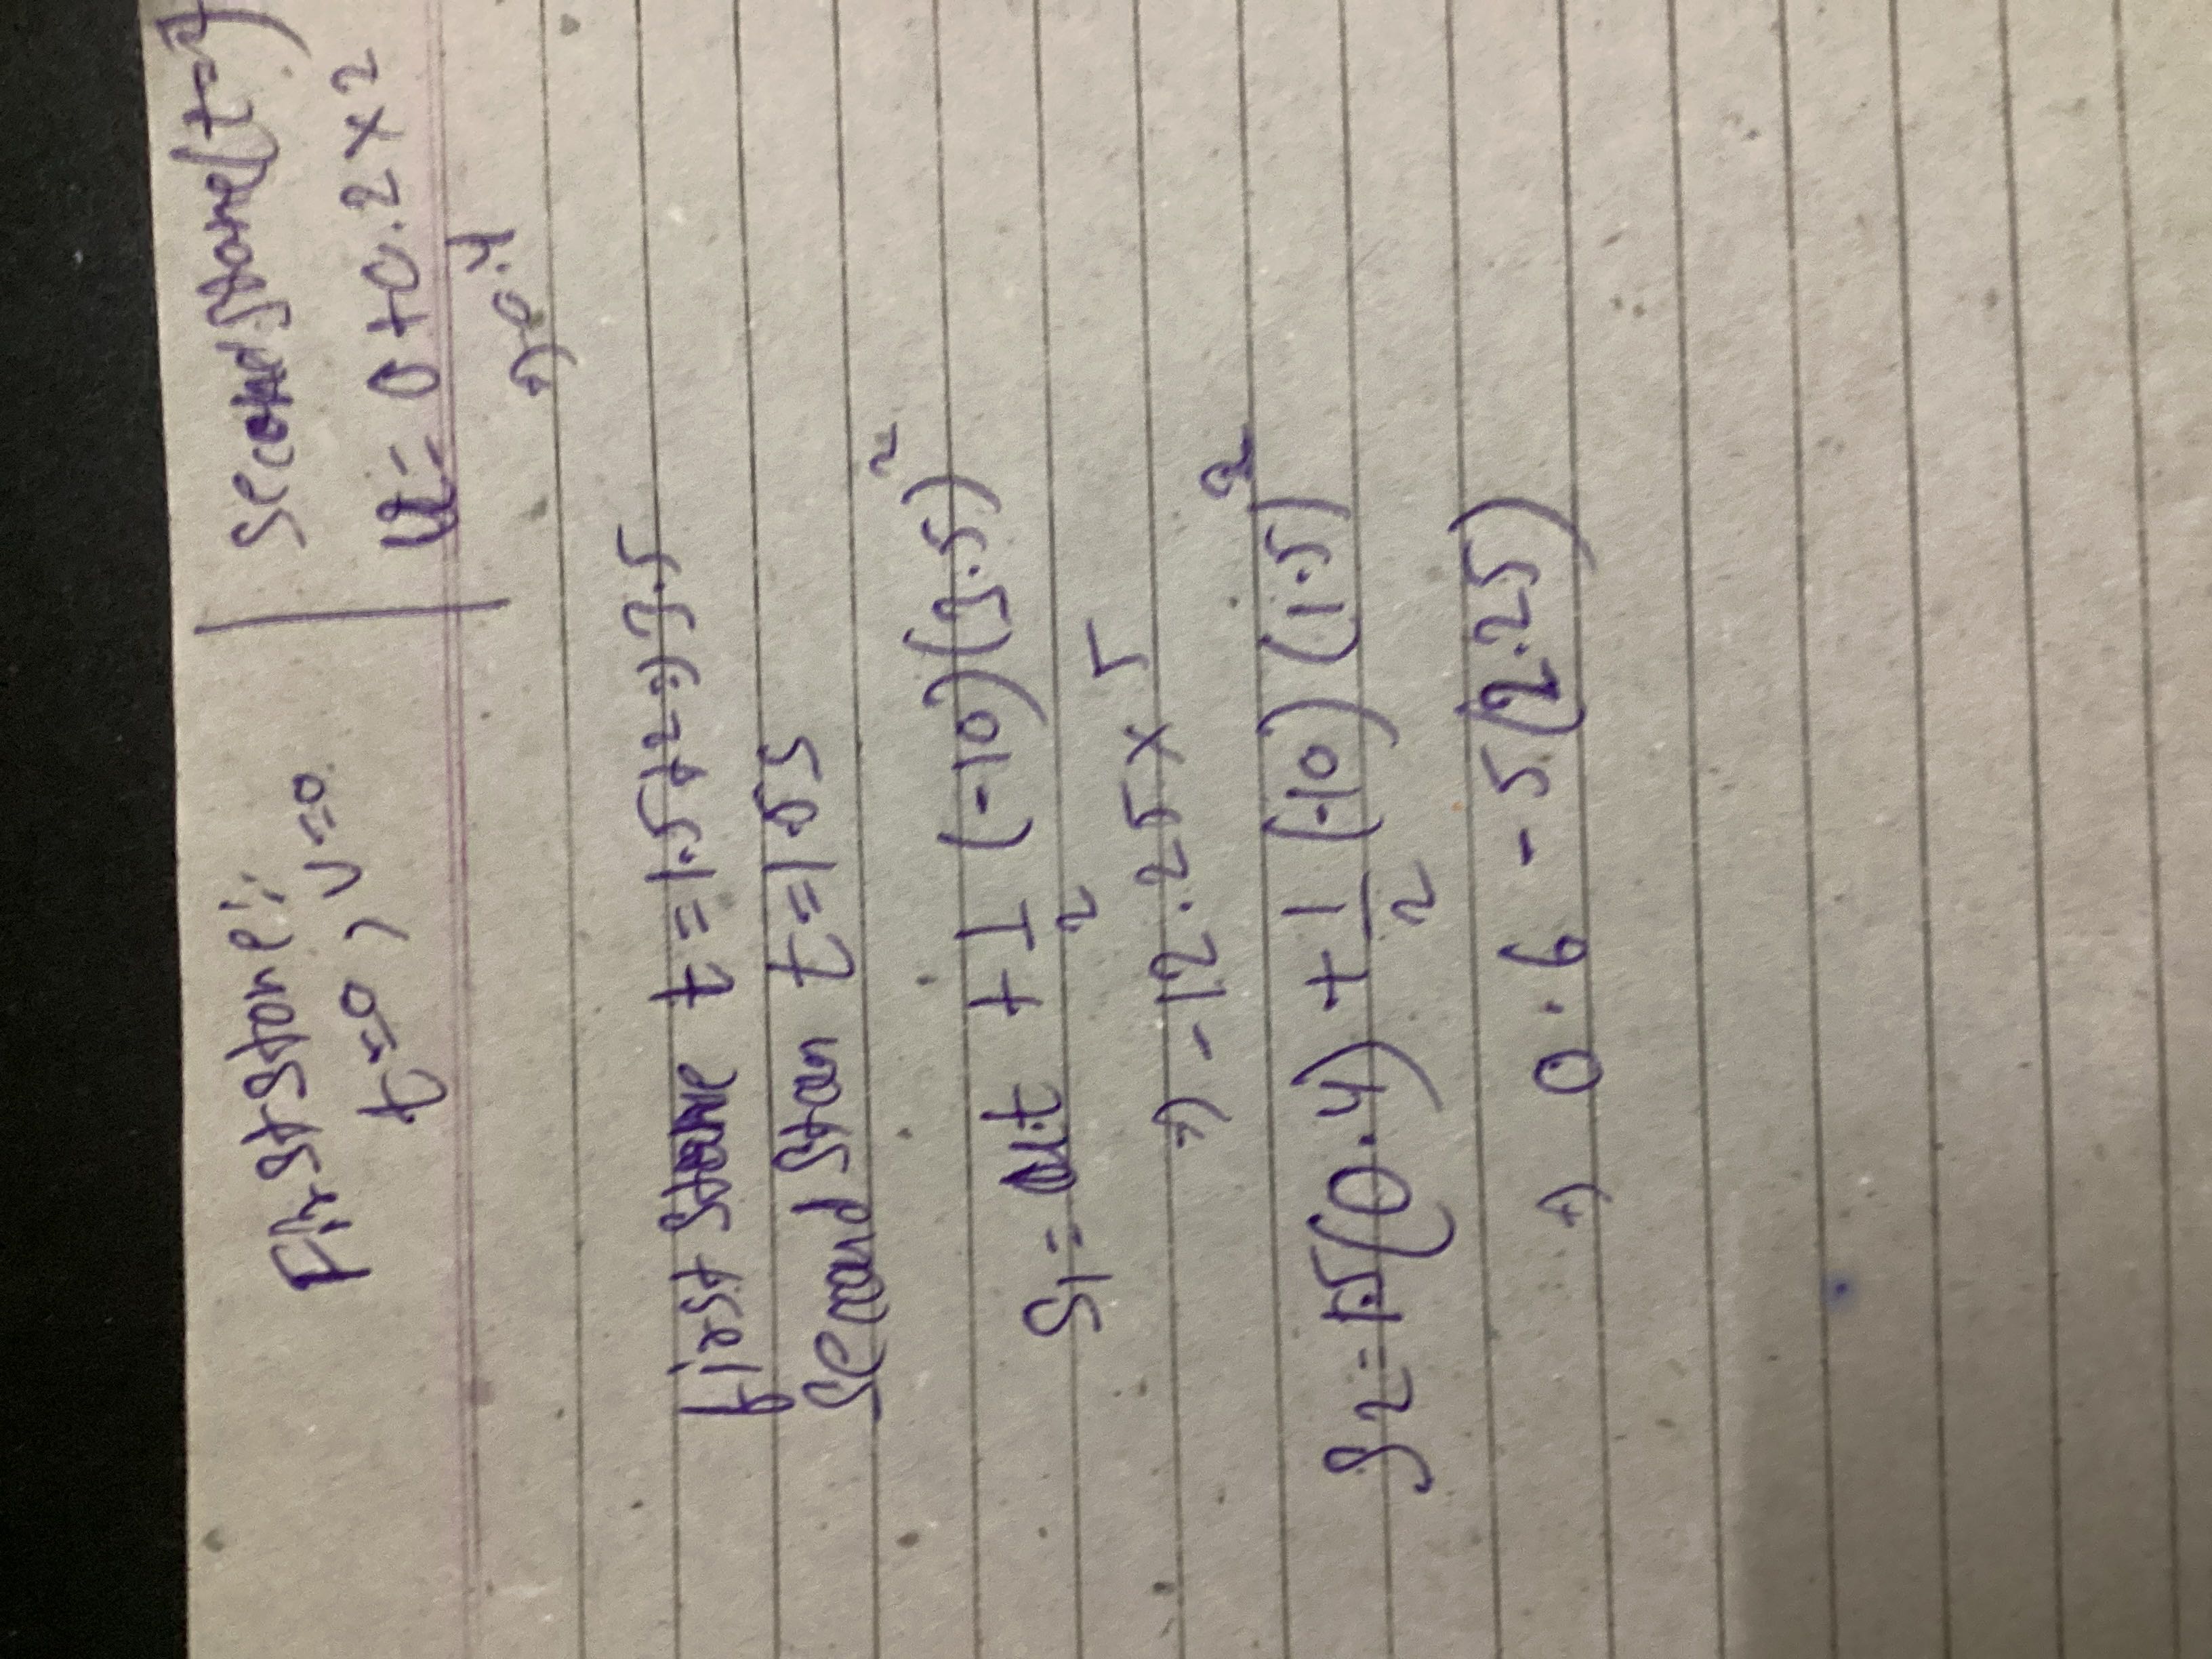 First stone:
t=0, v=0
Second stone (t=2)
u = 0+0.2×2
⇒ 0.4
first stone t=1.5+2⇒3.5
Second ston t=1.5s
S1 = ut + 1/2 (-10)(3.5)²
⇒ -12.25×5
S2 = 1.5(0.4) + 1/2 (-10)(1.5)²
⇒ 0.6 - 5(2.25)